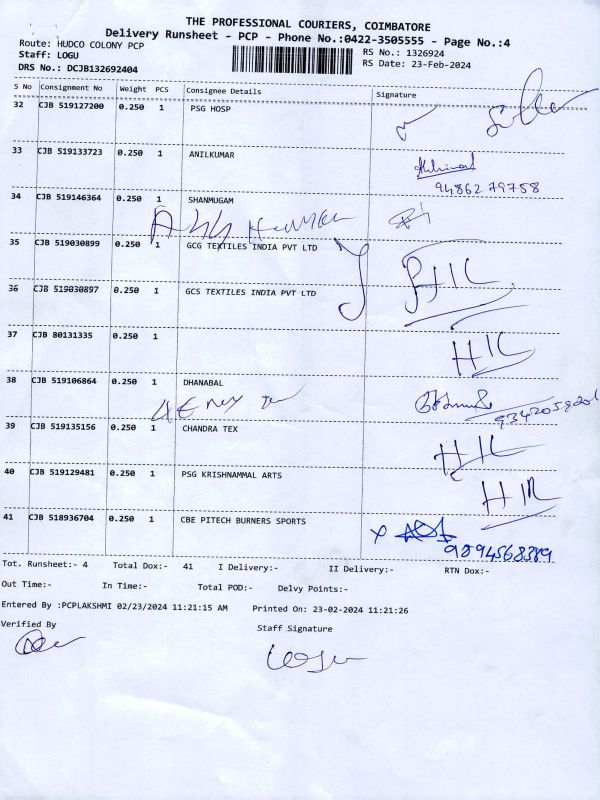 THE PROFESSIONAL COURIERS, COIMBATORE
Delivery Runsheet - PCP - Phone No.:0422-3505555 - Page No.:4
Route: HUDCO COLONY PCP
RS No.: 1326924
Staff: LOGU
RS Date: 23-Feb-2024
DRS No.: DCJB132692404
S No Consignment No Weight PCS Consignee Details Signature
32 CJB 519127200 0.250 1 PSG HOSP
33 CJB 519133723 0.250 1 ANILKUMAR
9486279758
34 CJB 519146364 0.250 1 SHANMUGAM
35 CJB 519030899 0.250 1 GCG TEXTILES INDIA PVT LTD
36 CJB 519030897 0.250 1 GCS TEXTILES INDIA PVT LTD
37 CJB 80131335 0.250 1
38 CJB 519106864 0.250 1 DHANABAL
39 CJB 519135156 0.250 1 CHANDRA TEX
40 CJB 519129481 0.250 1 PSG KRISHNAMMAL ARTS
41 CJB 518936704 0.250 1 CBE PITECH BURNERS SPORTS
Tot. Runsheet:- 4 Total Dox:- 41 I Delivery:- II Delivery:- RTN Dox:-
Out Time:- In Time:- Total POD:- Delvy Points:-
Entered By :PCPLAKSHMI 02/23/2024 11:21:15 AM Printed On: 23-02-2024 11:21:26
Verified By Staff Signature